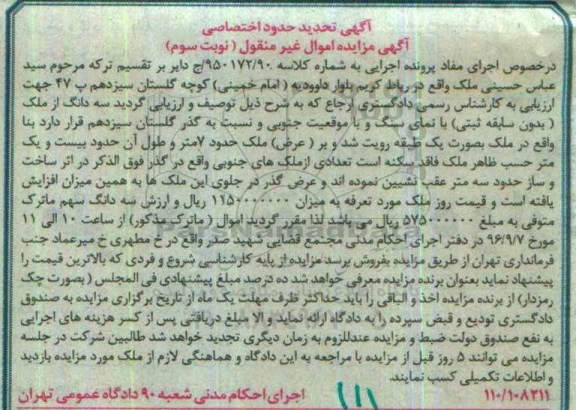 آگهی تحدید حدود اختصاصی
آگهی مزایده اموال غیر منقول ( نوبت سوم )
درخصوص اجرای مفاد پرونده اجرایی به شماره کلاسه ۹۵۰۱۷۲/۹۰/ج دایر بر تقسیم ترکه مرحوم سید
عباس حسینی ملک واقع در رباط کریم بلوار داوودیه ( امام خمینی) کوچه گلستان سیزدهم پ ۴۷ جهت
ارزیابی به کارشناس رسمی دادگستری ارجاع که به شرح ذیل توصیف و ارزیابی گردید سه دانگ از ملک
( بدون سابقه ثبتی) با نمای سنگ و با موقعیت جنوبی و نسبت به گذر گلستان سیزدهم قرار دارد بنا
واقع در ملک بصورت یک طبقه رویت شد و بر ( عرض) ملک حدود ۷متر و طول آن حدود بیست و یک
متر حسب ظاهر ملک فاقد سکنه است تعدادی ازملک های جنوبی واقع در گذر فوق الذکر در اثر ساخت
و ساز حدود سه متر عقب نشیین نموده اند و عرض گذر در جلوی این ملک ها به همین میزان افزایش
یافته است و قیمت روز ملک مورد تعرفه به میزان ۱۱۵۰۰۰۰۰۰۰ ریال و ارزش سه دانگ سهم ماترک
متوفی به مبلغ ۵۷۵۰۰۰۰۰۰ ریال می باشد لذا مقرر گردید اموال ( ماترک مذکور) از ساعت ۱۰ الی ۱۱
مورخ ۹۶/۹/۷ در دفتر اجرای احکام مدنی مجتمع قضایی شهید صدر واقع در خ مطهری خ میرعماد جنب
فرمانداری تهران از طریق مزایده بفروش برسد مزایده از پایه کارشناسی شروع و فردی که بالاترین قیمت را
پیشنهاد نماید بعنوان برنده مزایده معرفی خواهد شد ده درصد مبلغ پیشنهادی فی المجلس ( بصورت چک
رمزدار) از برنده مزایده اخذ و الباقی را باید حداکثر ظرف مهلت یک ماه از تاریخ برگزاری مزایده به صندوق
دادگستری تودیع و قبض سپرده را به دادگاه ارائه دماید و الا مبلغ دریافتی پس از کسر هزینه های اجرایی
به نفع صندوق دولت ضبط و مزایده عندللزوم به زمان دیگری تجدید خواهد شد طالبین شرکت در جلسه
مزایده می توانند ۵ روز قبل از مزایده با مراجعه به این دادگاه و هماهنگی لازم از ملک مورد مزایده بازدید
و اطلاعات تکمیلی کسب نمایند.
۱۱۰/۱۰۸۲۱۱ اجرای احکام مدنی شعبه ۹۰ دادگاه عمومی تهران
۱۱۱